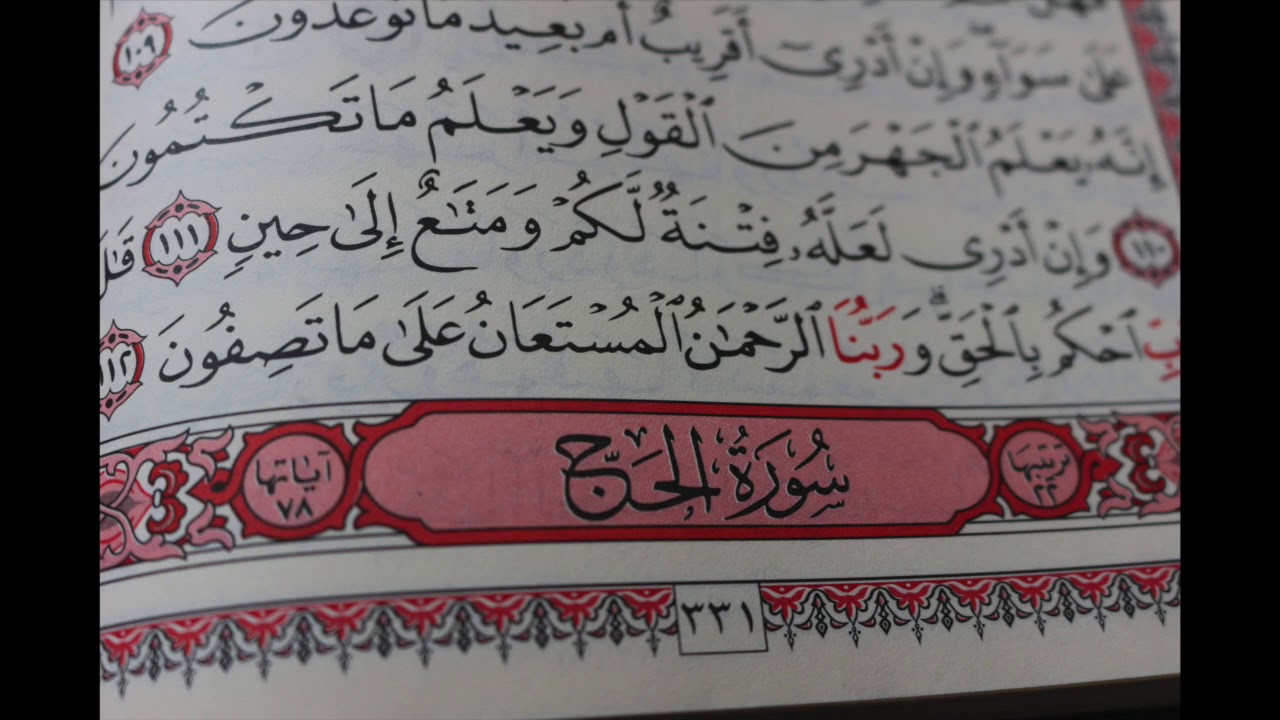 عَلَىٰ سَوَآءٍ وَإِنْ أَدْرِىٓ أَقَرِيبٌ أَم بَعِيدٌ مَّا تُوعَدُونَ ١٠٩
إِنَّهُۥ يَعْلَمُ ٱلْجَهْرَ مِنَ ٱلْقَوْلِ وَيَعْلَمُ مَا تَكْتُمُونَ
١١٠ وَإِنْ أَدْرِى لَعَلَّهُۥ فِتْنَةٌ لَّكُمْ وَمَتَٰعٌ إِلَىٰ حِينٍ ١١١ قَٰلَ
بِّ ٱحْكُم بِٱلْحَقِّ ۗ وَرَبُّنَا ٱلرَّحْمَٰنُ ٱلْمُسْتَعَانُ عَلَىٰ مَا تَصِفُونَ ١١٢
ترتيبها ٢٢ سُورَةُ الحَجِّ آياتها ٧٨
٣٣١